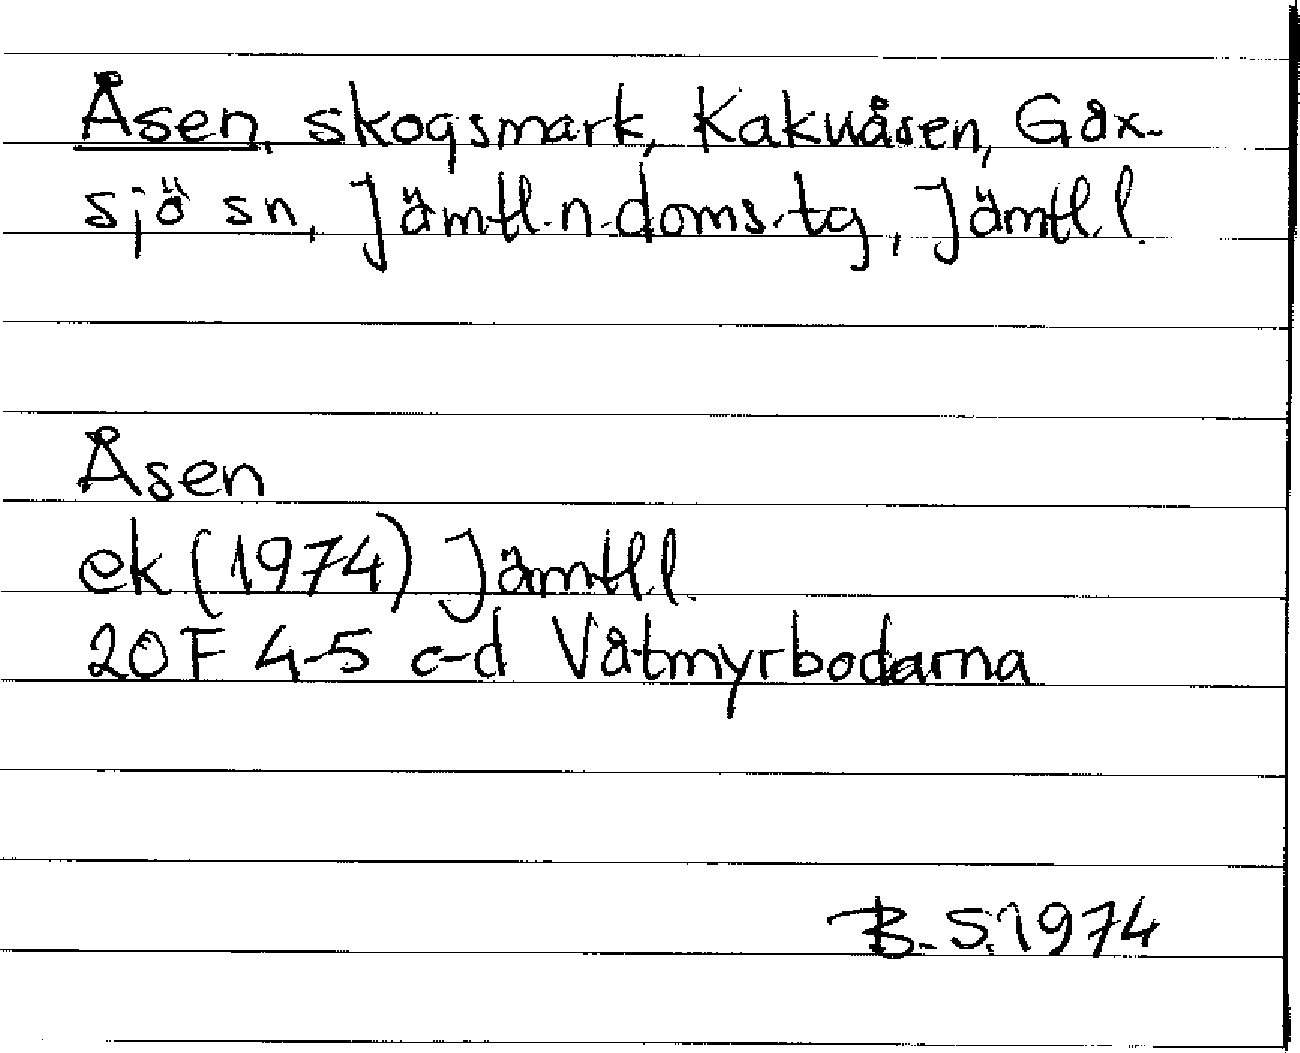 Åsen, skogsmark, Kakuåsen, Gåx-
sjö sn, Jämtl.n.doms.tg, Jämtl.l.
Åsen
ek (1974) Jämtl.l.
20F 4-5 c-d Våtmyrbodarna
B.S.1974